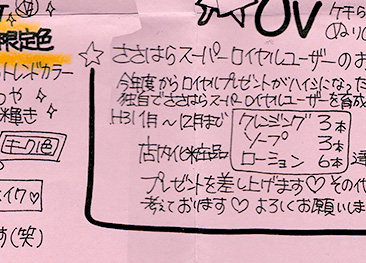 OV
ケチら
ぬり
限定色
トレンドカラー
つや
輝き
モーク1色
メイク♡
す(笑)
☆ ささはらスーパーロイヤルユーザーのお
今年度からロイヤルプレゼントがハイシになった
独自でささはらスーパーロイヤルユーザーを育成
H31 1月〜12月まで
店内化粧品
クレンジング 3本
ソープ 3本
ローション 6本
プレゼントを差し上げます♡ その代
考えております♡ よろしくお願いしま